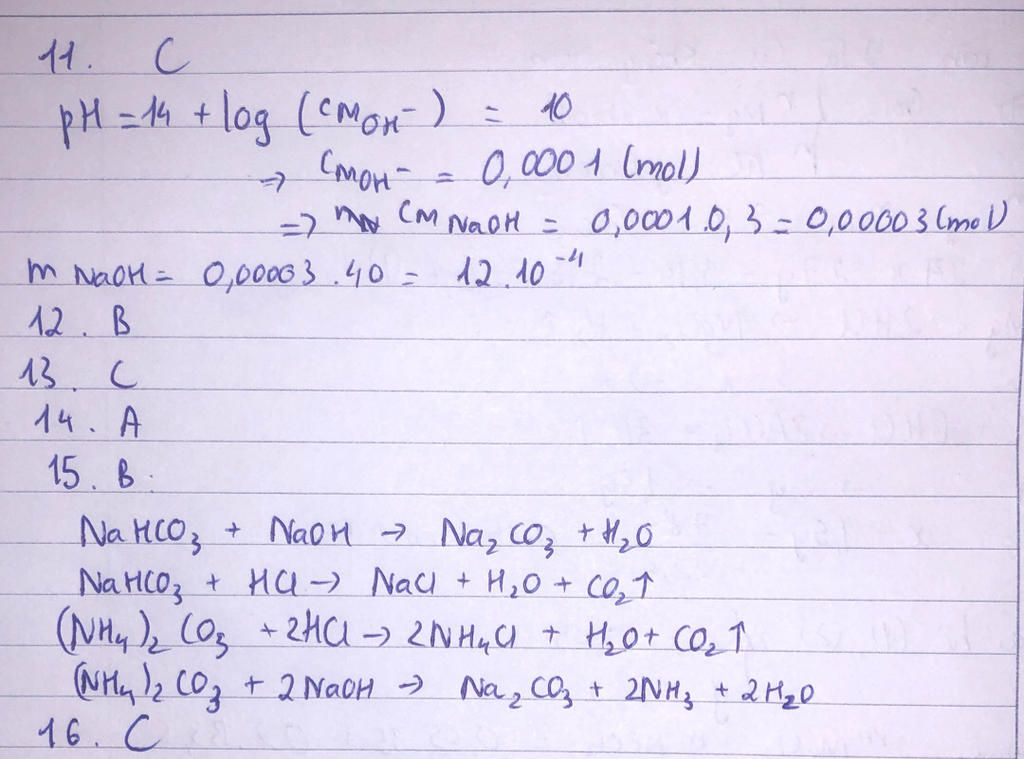 11. C
pH = 14 + log (CM OH⁻) = 10
=> CM OH⁻ = 0,0001 (mol)
=> CM NaOH = 0,0001.0,3 = 0,00003 (mol)
m NaOH = 0,00003.40 = 12.10⁻⁴
12. B
13. C
14. A
15. B.
NaHCO₃ + NaOH → Na₂CO₃ + H₂O
NaHCO₃ + HCl → NaCl + H₂O + CO₂↑
(NH₄)₂CO₃ + 2HCl → 2NH₄Cl + H₂O + CO₂↑
(NH₄)₂CO₃ + 2NaOH → Na₂CO₃ + 2NH₃ + 2H₂O
16. C